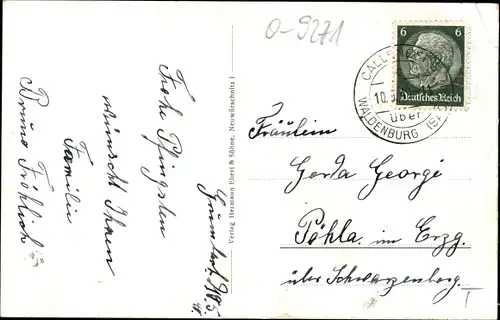 O-9271
Frohe Pfingsten
wünscht Ihnen
Familie
Bruno Fröhlich
Verlag Hermann Ebert & Söhne, Neuwürschnitz i
6 6
Deutsches Reich
10.
über
WALDENBURG (S
Fräulein
Gerda George
Pöhla im Erzg.
über Schwarzenberg.
T